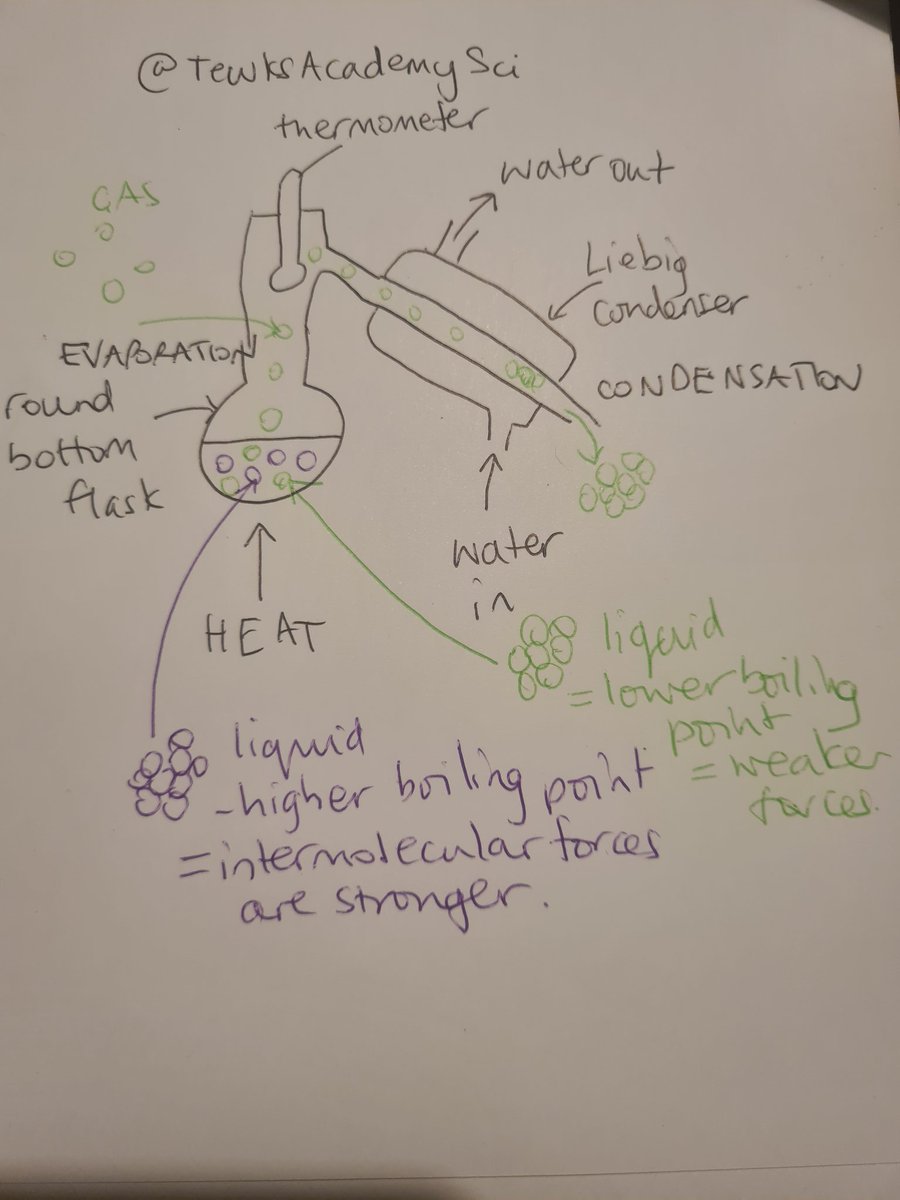 @TewksAcademySci
thermometer
Water out
GAS
Liebig
condenser
EVAPORATION
CONDENSATION
round
bottom
flask
water
in
HEAT
liquid
= lower boiling
point
= weaker
forces.
liquid
- higher boiling point
= intermolecular forces
are stronger.